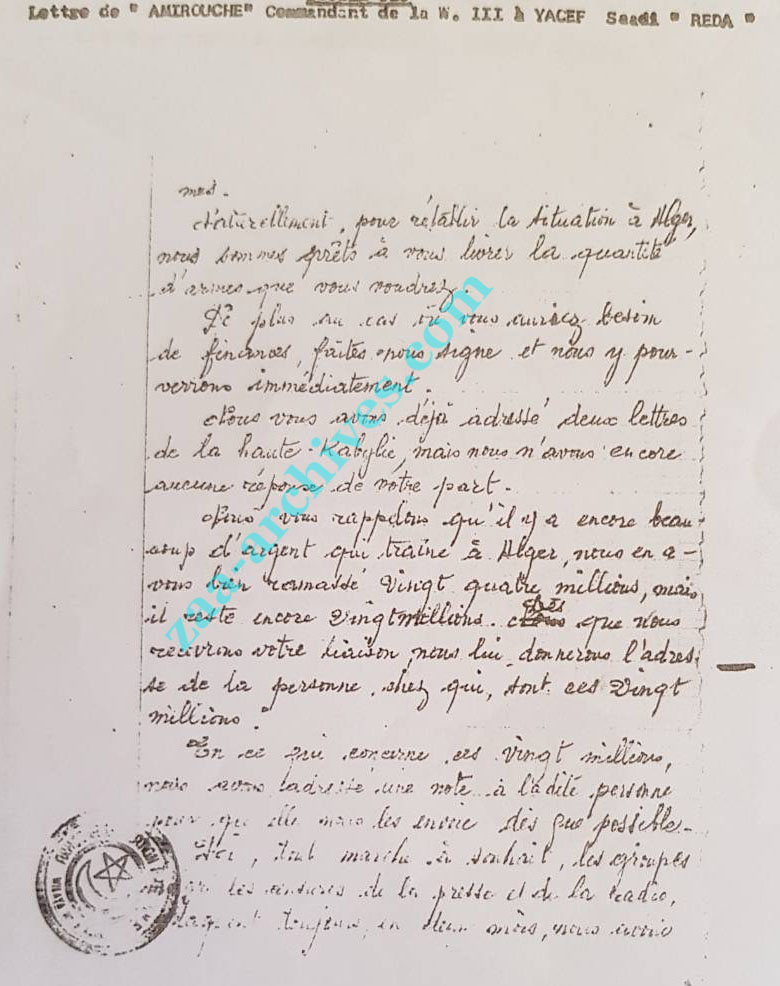 Lettre de " AMIROUCHE" Commandant de la W. III à YACEF Saadi " REDA "
med.
Naturellement, pour rétablir la situation à Alger,
nous sommes prêts à vous livrer la quantité
d'armes que vous voudrez.
De plus au cas où vous auriez besoin
de finances, faites-nous signe et nous y pour-
verrons immédiatement.
Nous vous avons déjà adressé deux lettres
de la haute Kabylie, mais nous n'avons encore
aucune réponse de votre part.
Nous vous rappelons qu'il y a encore beau-
coup d'argent qui traîne à Alger, nous en a-
vons bien ramassé Vingt quatre millions, mais
il reste encore Vingt millions. Dès que nous
recevrons votre liaison, nous lui donnerons l'adres-
se de la personne chez qui, sont ces Vingt
millions.
En ce qui concerne ces Vingt millions,
nous avons adressé une note à ladite personne
pour qu'elle nous les envoie dès que possible.
Ici, tout marche à souhait, les groupes
les censures de la presse et de la radio,
toujours, en deux mois, nous avons
zaa-archives.com